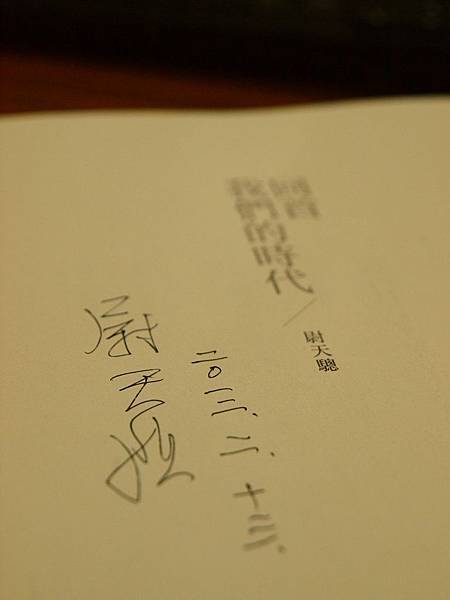 回首
我們的時代／尉天驄
尉天驄
二〇一二.二.十三.